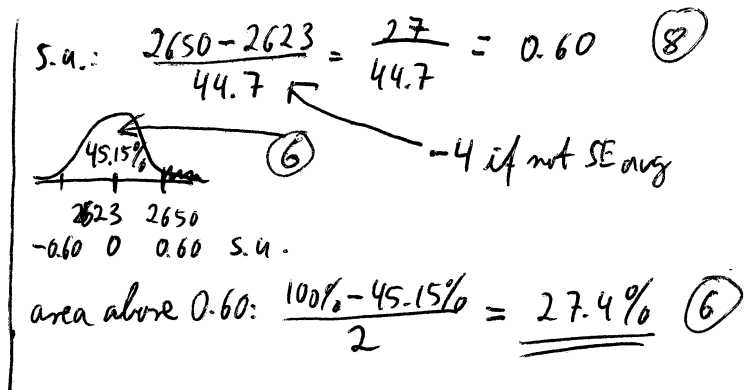 s.u.: 2650-2623 / 44.7 = 27 / 44.7 = 0.60 8
45.15% 6 -4 if not SE avg
2623 2650
-0.60 0 0.60 s.u.
area above 0.60: 100%-45.15% / 2 = 27.4% 6